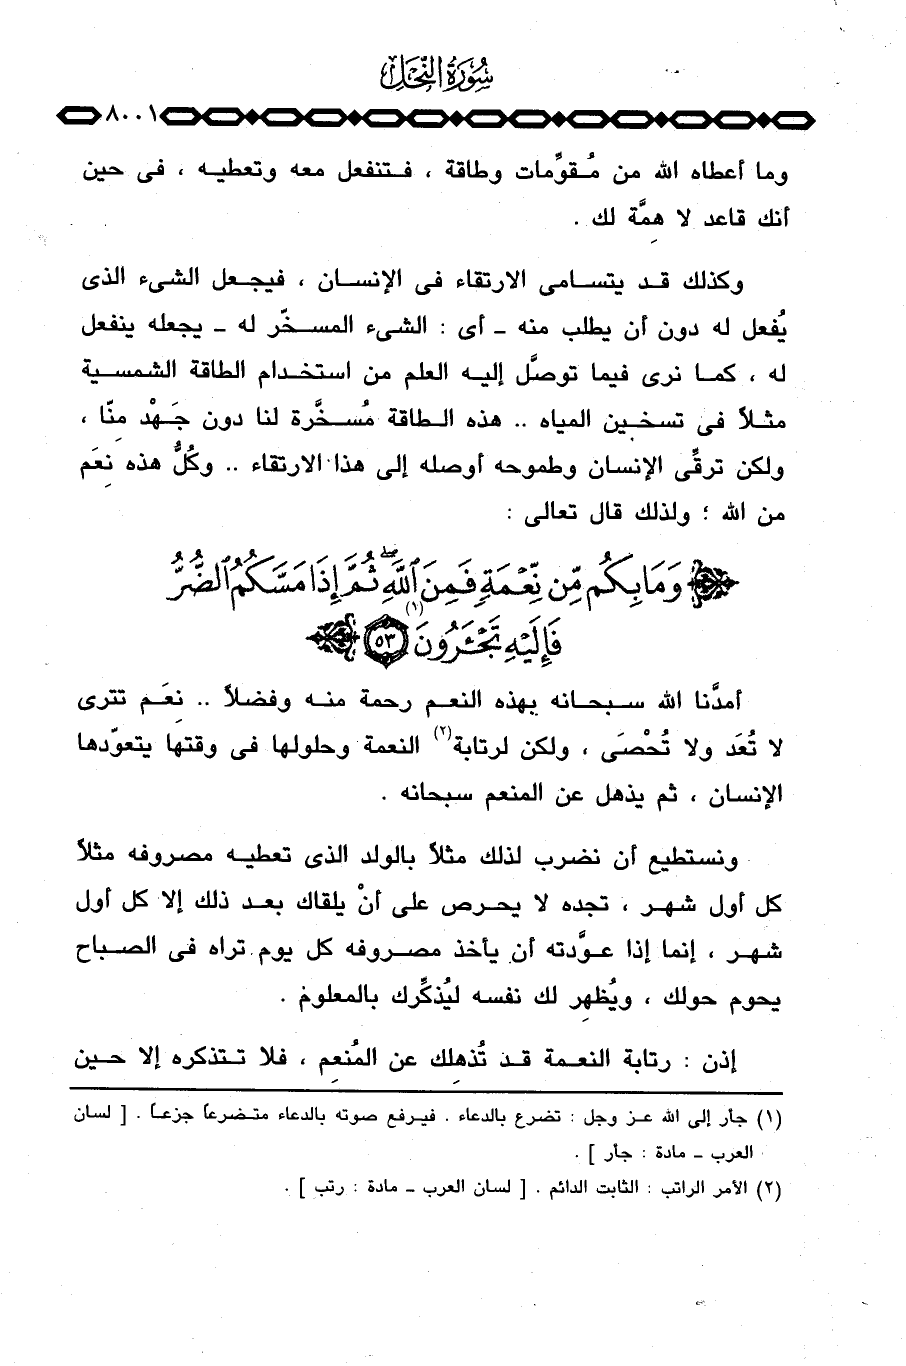 سُورَةُ النَّحْلِ
٨٠٠١
وما أعطاه الله من مُقوِّمات وطاقة ، فتنفعل معه وتعطيه ، فى حين
أنك قاعد لا همَّة لك .
وكذلك قد يتسامى الارتقاء فى الإنسان ، فيجعل الشىء الذى
يُفعل له دون أن يطلب منه - أى : الشىء المسخّر له - يجعله ينفعل
له ، كما نرى فيما توصَّل إليه العلم من استخدام الطاقة الشمسية
مثلاً فى تسخين المياه .. هذه الطاقة مُسخَّرة لنا دون جَهْد مِنّا ،
ولكن ترقِّى الإنسان وطموحه أوصله إلى هذا الارتقاء .. وكُلُّ هذه نِعَم
من الله ؛ ولذلك قال تعالى :
﴿ وَمَا بِكُم مِّن نِّعْمَةٍ فَمِنَ ٱللَّهِ ۖ ثُمَّ إِذَا مَسَّكُمُ ٱلضُّرُّ
فَإِلَيْهِ تَجْـَٔرُونَ (١) ٥٣ ﴾
أمدَّنا الله سبحانه بهذه النعم رحمة منه وفضلاً .. نِعَم تترى
لا تُعَد ولا تُحْصَى ، ولكن لرتابة(٢) النعمة وحلولها فى وقتها يتعوّدها
الإنسان ، ثم يذهل عن المنعم سبحانه .
ونستطيع أن نضرب لذلك مثلاً بالولد الذى تعطيه مصروفه مثلاً
كل أول شهر ، تجده لا يحرص على أنْ يلقاك بعد ذلك إلا كل أول
شهر ، إنما إذا عوَّدته أن يأخذ مصروفه كل يوم تراه فى الصباح
يحوم حولك ، ويُظهِر لك نفسه ليُذكِّرك بالمعلوم .
إذن : رتابة النعمة قد تُذهِلك عن المُنعِم ، فلا تتذكره إلا حين
(١) جأر إلى الله عز وجل : تضرع بالدعاء . فيرفع صوته بالدعاء متضرعاً جزعاً . [ لسان
العرب - مادة : جأر ] .
(٢) الأمر الراتب : الثابت الدائم . [ لسان العرب - مادة : رتب ] .